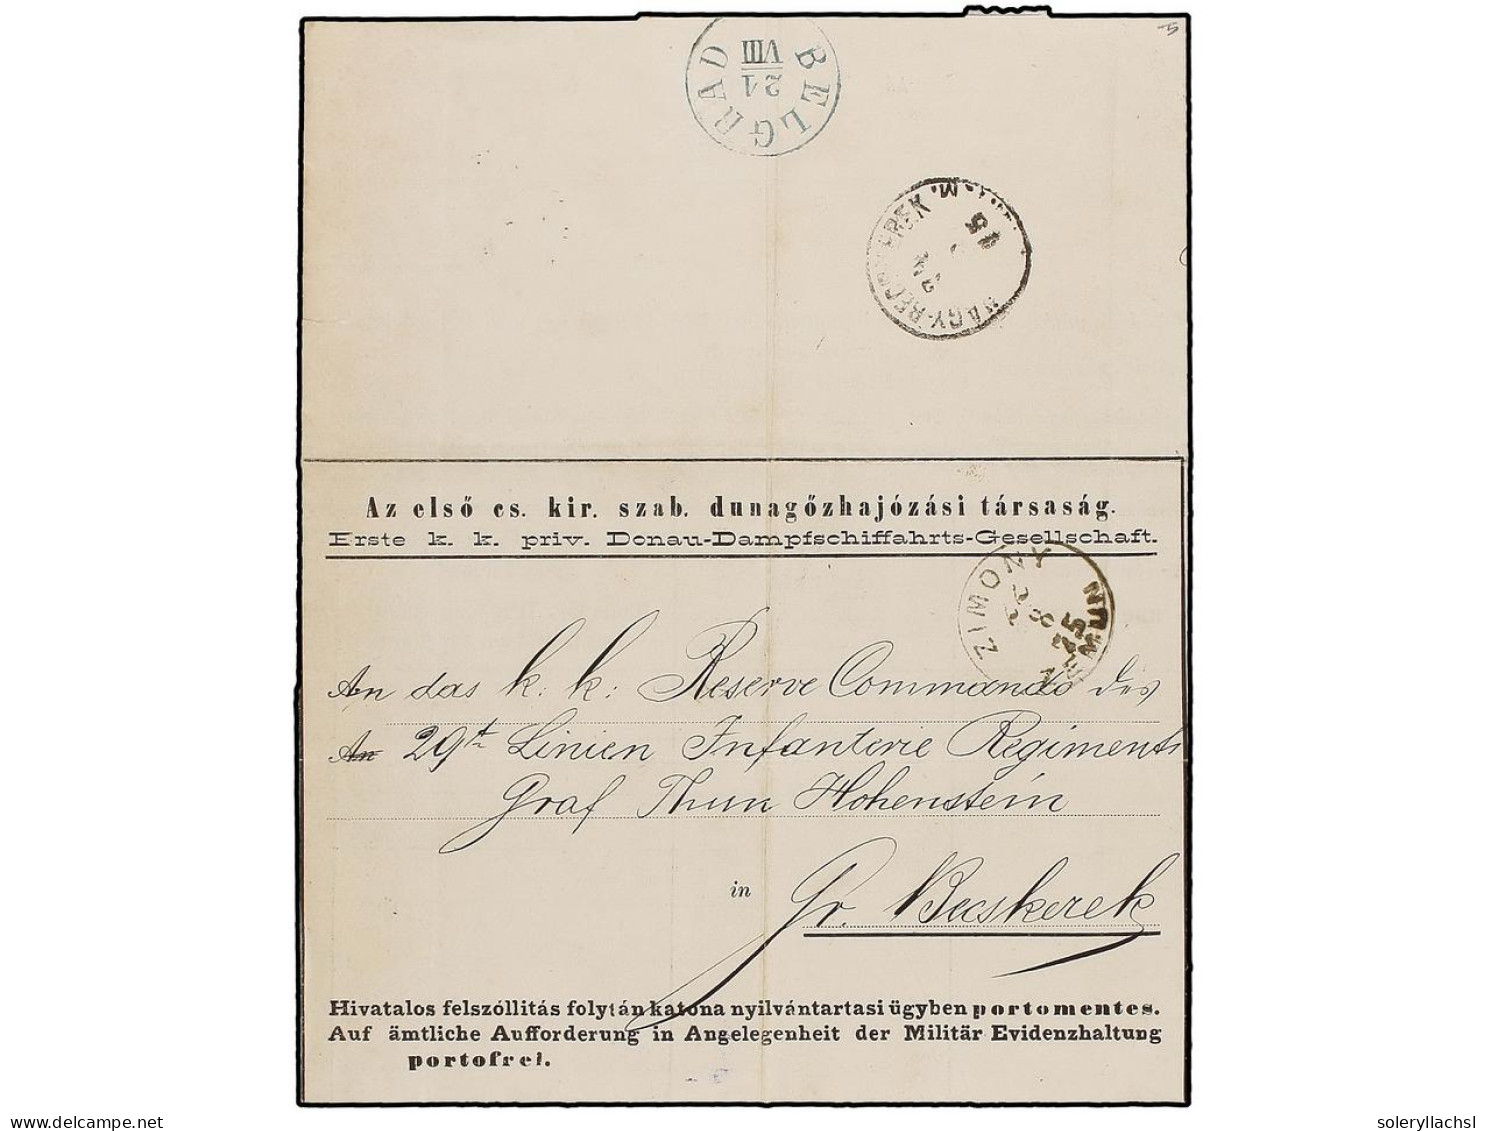 BELGRAD
21
VIII
NAGY-BECSKEREK
Az első cs. kir. szab. dunagőzhajózási társaság.
Erste k. k. priv. Donau-Dampfschiffahrts-Gesellschaft.
ZIMONY
SEMLIN
An das k. k. Reserve Commando des
An 29t Linien Infanterie Regiments
Graf Thun Hohenstein
in Gr. Becskerek
Hivatalos felszóllitás folytán katona nyilvántartasi ügyben portomentes.
Auf ämtliche Aufforderung in Angelegenheit der Militär Evidenzhaltung
portofrei.
delcampe.net
soleryllachsl